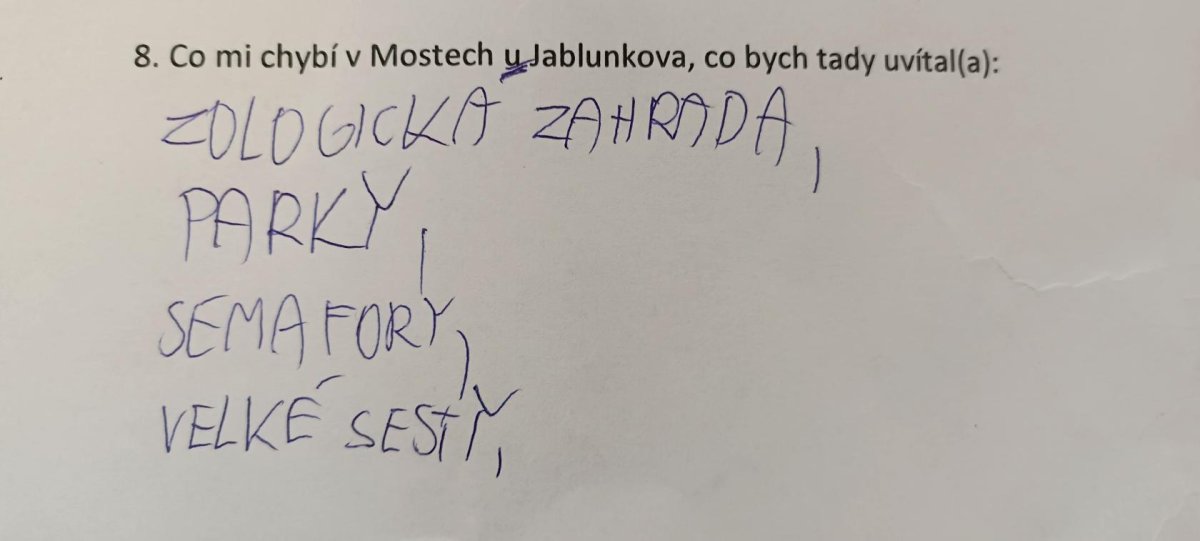 8. Co mi chybí v Mostech u Jablunkova, co bych tady uvítal(a):
ZOLOGICKÁ ZAHRADA,
PARKY,
SEMAFORY,
VELKÉ SESTY,